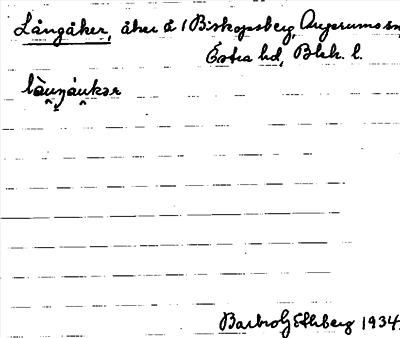 Långåker, åker å 1 Biskopsberg, Augerums sn
Östra hd, Blek. l.
Barbro 1934.